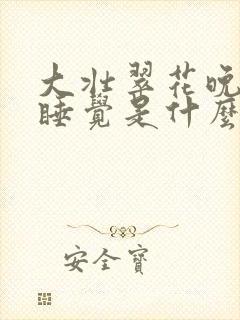 大壮翠花晚
睡覺是什麼
安全寶